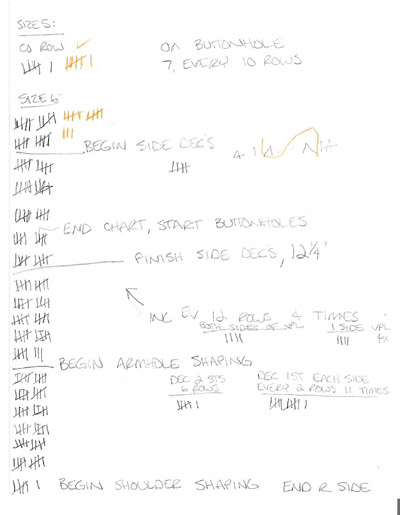 SIZE 5:
CO ROW ✓ ON BUTTONHOLE
7, EVERY 10 ROWS
SIZE 6:
BEGIN SIDE DEC'S
END CHART, START BUTTONHOLES
FINISH SIDE DEC'S, 12 1/4"
INC EV 12 ROWS 4 TIMES
BOTH SIDES OF 1 SIDE
4x
BEGIN ARMHOLE SHAPING
DEC 2 STS DEC 1ST EACH SIDE
6 ROWS EVERY 2 ROWS 11 TIMES
BEGIN SHOULDER SHAPING END R SIDE